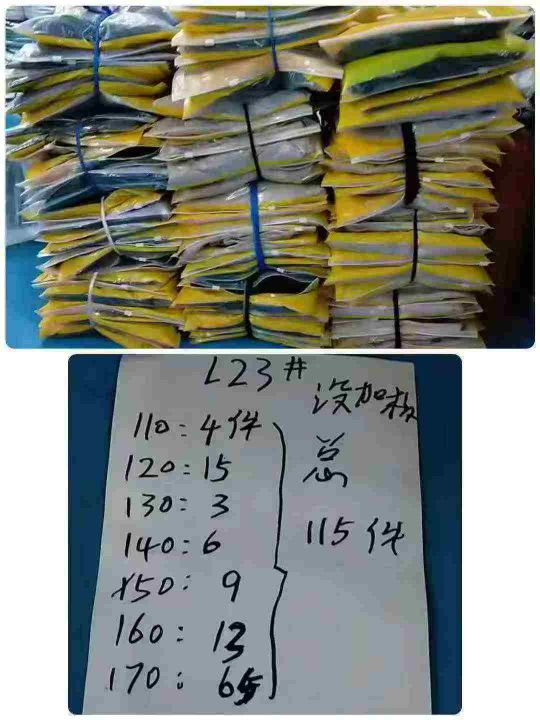 L23#
没加
110: 4件
120: 15
130: 3
140: 6
150: 9
160: 13
170: 65
总
115件